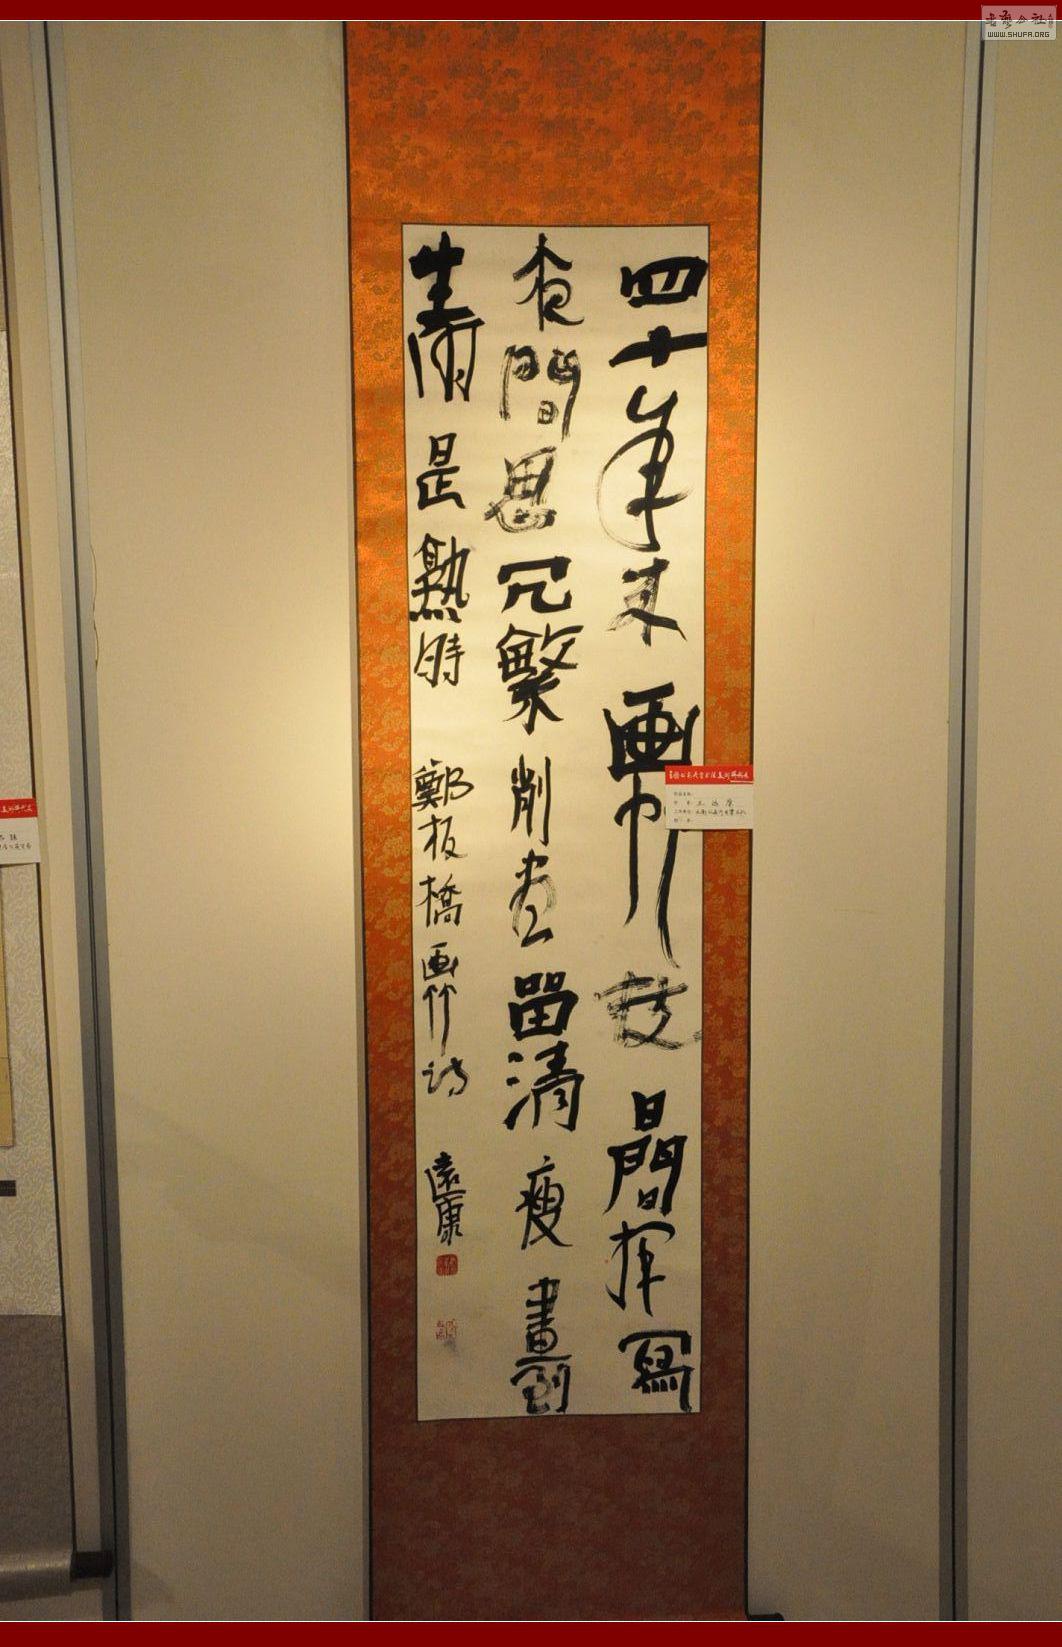 四十年来画竹枝日间挥写
夜间思冗繁削尽留清瘦画到
生时是熟时 郑板桥画竹诗 远康
书艺公社
WWW.SHUFA.ORG